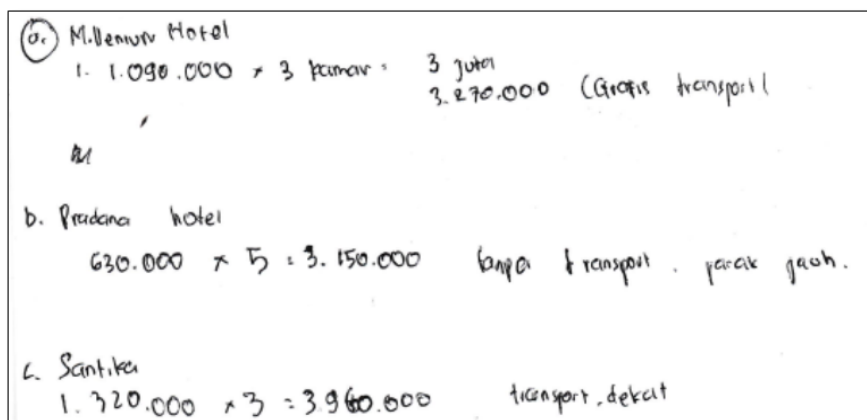 a. Millenium Hotel
1. 1.090.000 × 3 kamar = 3 juta
3.270.000 (Gratis transport)
b. Pradana hotel
630.000 × 5 = 3.150.000 tanpa transport. jarak jauh.
c. Santika
1.320.000 × 3 = 3.960.000 transport. dekat